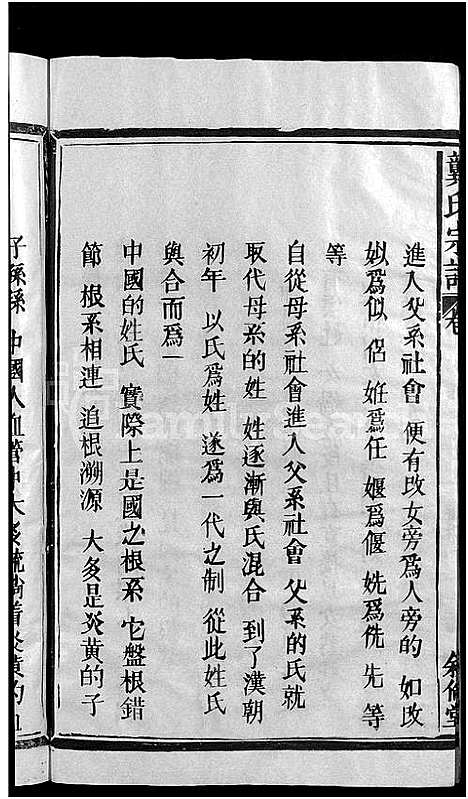 龔氏宗譜 卷
敘倫堂
進入父系社會 便有改女旁爲人旁的 如改
姒爲似 侶 姙爲任 媻爲偃 姺爲侁 先 等
等
自從母系社會進入父系社會 父系的氏就
取代母系的姓 姓逐漸與氏混合 到了漢朝
初年 以氏爲姓 遂爲一代之制 從此姓氏
與合而爲一
中國的姓氏 實際上是國之根系 它盤根錯
節 根系相連 追根溯源 大多是炎黃的子
子孫孫 中國人血管中大多流淌着炎黃的血